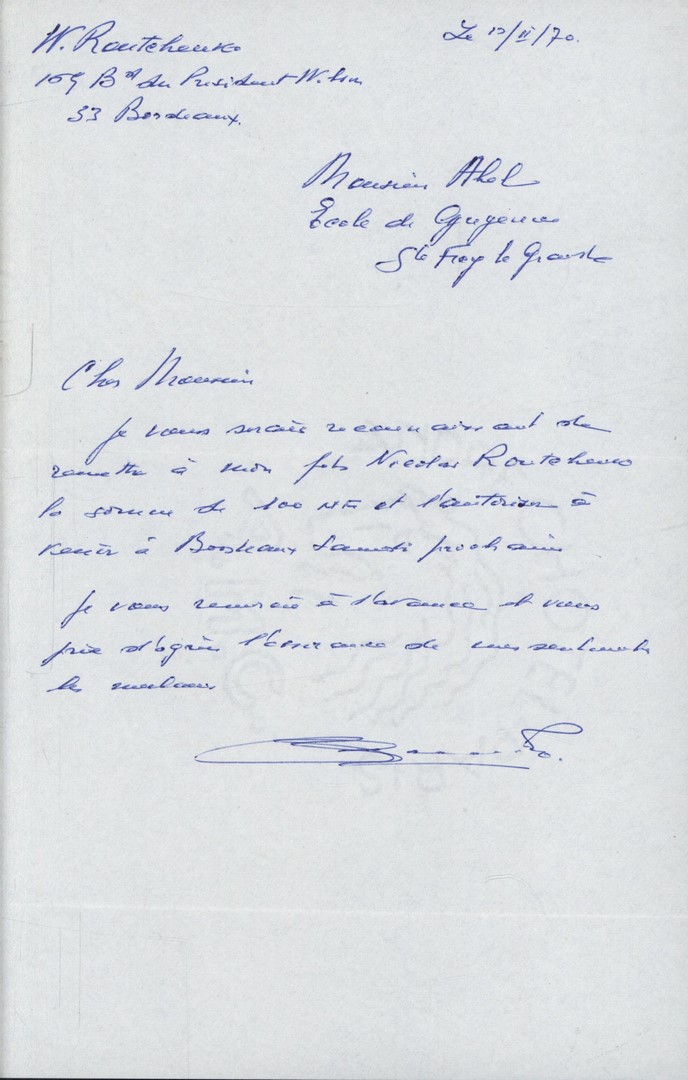 W. Routchenko
Le 13/II/70.
169 Bd du Président Wilson
33 Bordeaux.
Monsieur Abel
École de Guyenne
Ste Foy la Grande
Cher Monsieur
Je vous serais reconnaissant de
remettre à mon fils Nicolas Routchenko
la somme de 100 NF et l'autoriser à
venir à Bordeaux samedi prochain
Je vous remercie à l'avance et vous
prie d'agréer l'assurance de mes sentiments
les meilleurs